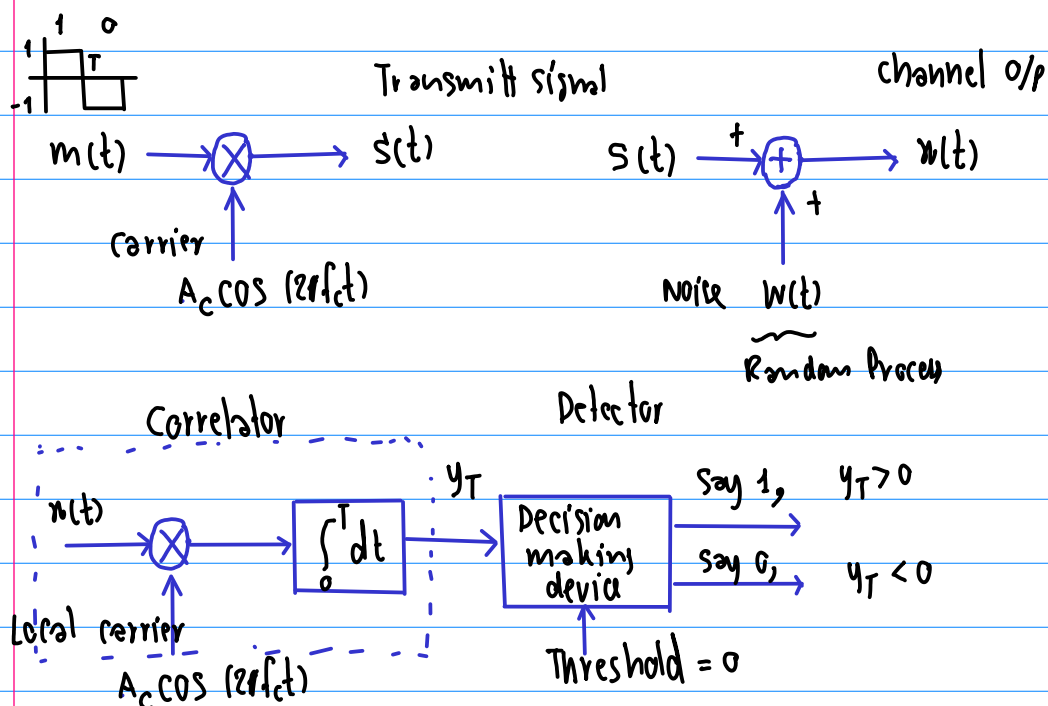 1 0
1
T
-1
Transmitt signal
channel o/p
m(t) S(t)
S(t) + + x(t)
+
carrier
A_c cos (2πf_c t)
Noise W(t)
Random Process
Correlator
Detector
x(t)
∫_0^T dt
y_T
Decision
making
device
say 1, y_T > 0
say 0, y_T < 0
Local carrier
A_c cos (2πf_c t)
Threshold = 0